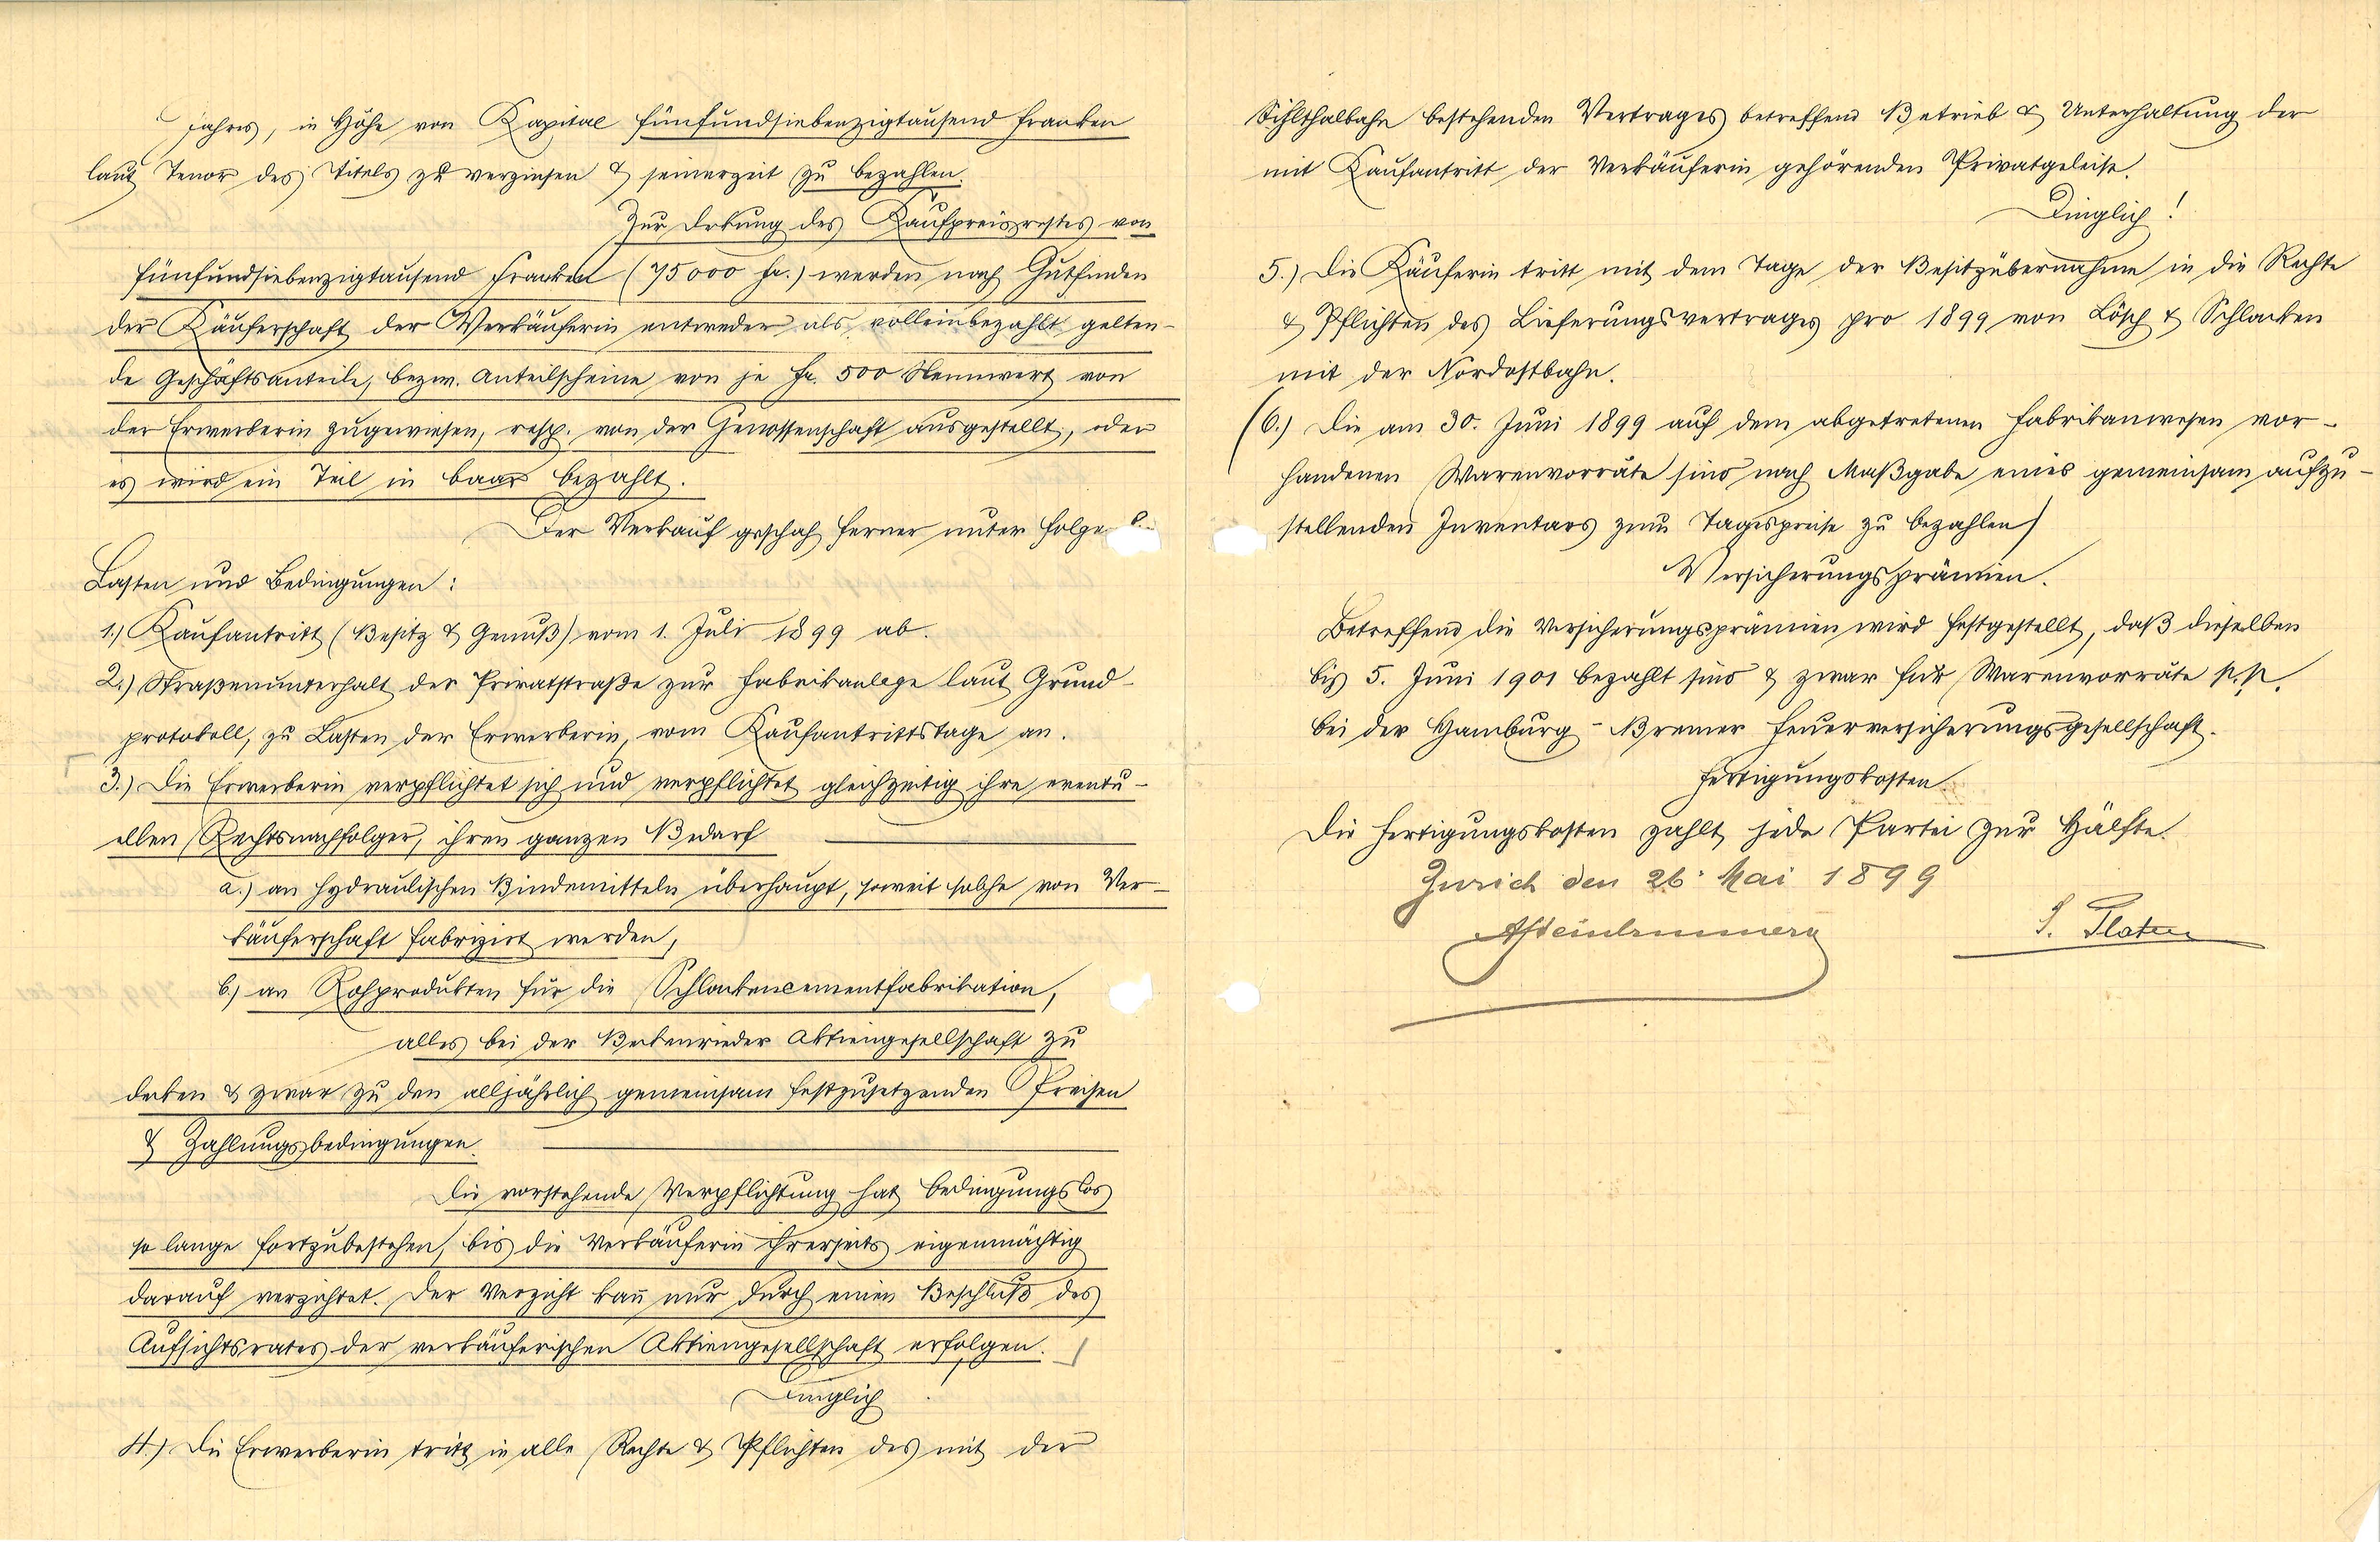 Jahres, in Höhe von Kapital fünfundsiebenzigtausend Franken
laut Tenor des Titels zu verzinsen & seinerzeit zu bezahlen.
Zur Dekung des Kaufpreisrestes von
fünfundsiebenzigtausend Franken (75000 fr.) werden nach Gutfinden
der Käuferschaft der Verkäuferin entweder als volleinbezahlt gelten-
de Geschäftsanteile, bezw. Anteilscheine von je fr. 500 Nennwert von
der Erwerberin zugewiesen, resp. von der Genossenschaft ausgestellt, oder
es wird ein Teil in baar bezahlt.
Der Verkauf geschah ferner unter folge
Lasten und Bedingungen:
1.) Kaufantritt (Besitz & Genuß) vom 1. Juli 1899 ab.
2.) Straßenunterhalt der Privatstraße zur Fabrikanlage laut Grund-
protokoll, zu Lasten der Erwerberin, vom Kaufantrittstage an.
3.) Die Erwerberin verpflichtet sich und verpflichtet gleichzeitig ihre eventu-
ellen Rechtsnachfolger, ihren ganzen Bedarf
a.) an hydraulischen Bindemitteln überhaupt, soweit solche von Ver-
käuferschaft fabrizirt werden,
b.) an Rohprodukten für die Schlackencementfabrikation,
alles bei der Beckenrieder Aktiengesellschaft zu
decken & zwar zu den alljährlich gemeinsam festzusetzenden Preisen
& Zahlungsbedingungen.
Die vorstehende Verpflichtung hat bedingungslos
so lange fortzubestehen, bis die Verkäuferin ihrerseits eigenmächtig
darauf verzichtet. Der Verzicht kan̄ nur durch einen Beschluß des
Aufsichtsrates der verkäuferischen Aktiengesellschaft erfolgen.
Dinglich !
4.) Die Erwerberin tritt in alle Rechte & Pflichten des mit der
Sihlthalbahn bestehenden Vertrages betreffend Betrieb & Unterhaltung der
mit Kaufantritt der Verkäuferin gehörenden Privatgeleise.
Dinglich !
5.) Die Käuferin tritt mit dem Tage der Besitzübernahme in die Rechte
& Pflichten des Lieferungsvertrages pro 1899 von Lösch & Schlacken
mit der Nordostbahn.
(6.) Die am 30. Juni 1899 auf dem abgetretenen Fabrikanwesen vor-
handenen Warenvorräte sind nach Maßgabe eines gemeinsam aufzu-
stellenden Inventars zum Tagespreise zu bezahlen)
Versicherungsprämien.
Betreffend die Versicherungsprämien wird festgestellt, daß dieselben
bis 5. Juni 1901 bezahlt sind & zwar für Warenvorräte p.p.
bei der Hamburg-Bremer Feuerversicherungsgesellschaft.
Fertigungskosten.
Die Fertigungskosten zahlt jede Partei zur Hälfte.
Zurich den 26. Mai 1899
Platen